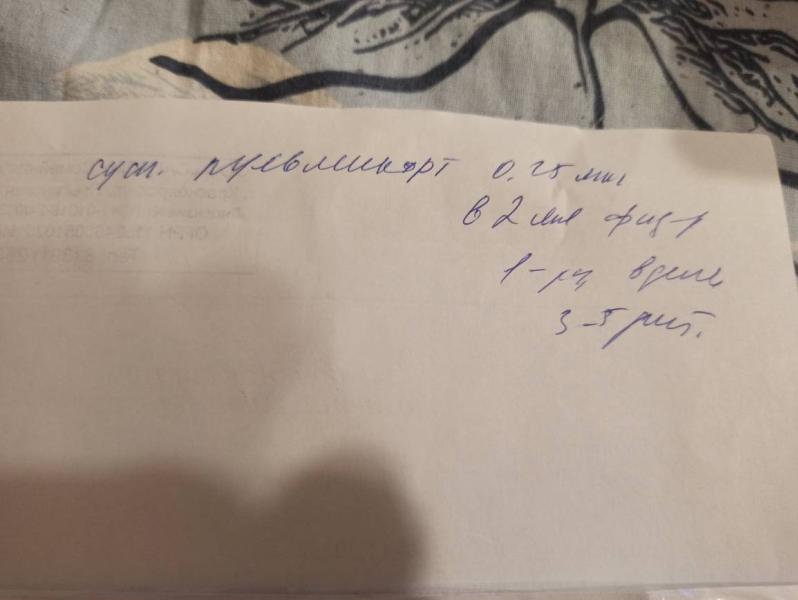 сусп. пульмикорт 0.25 мкг
в 2 мл физ-р
1-рз в день
3-5 дней.